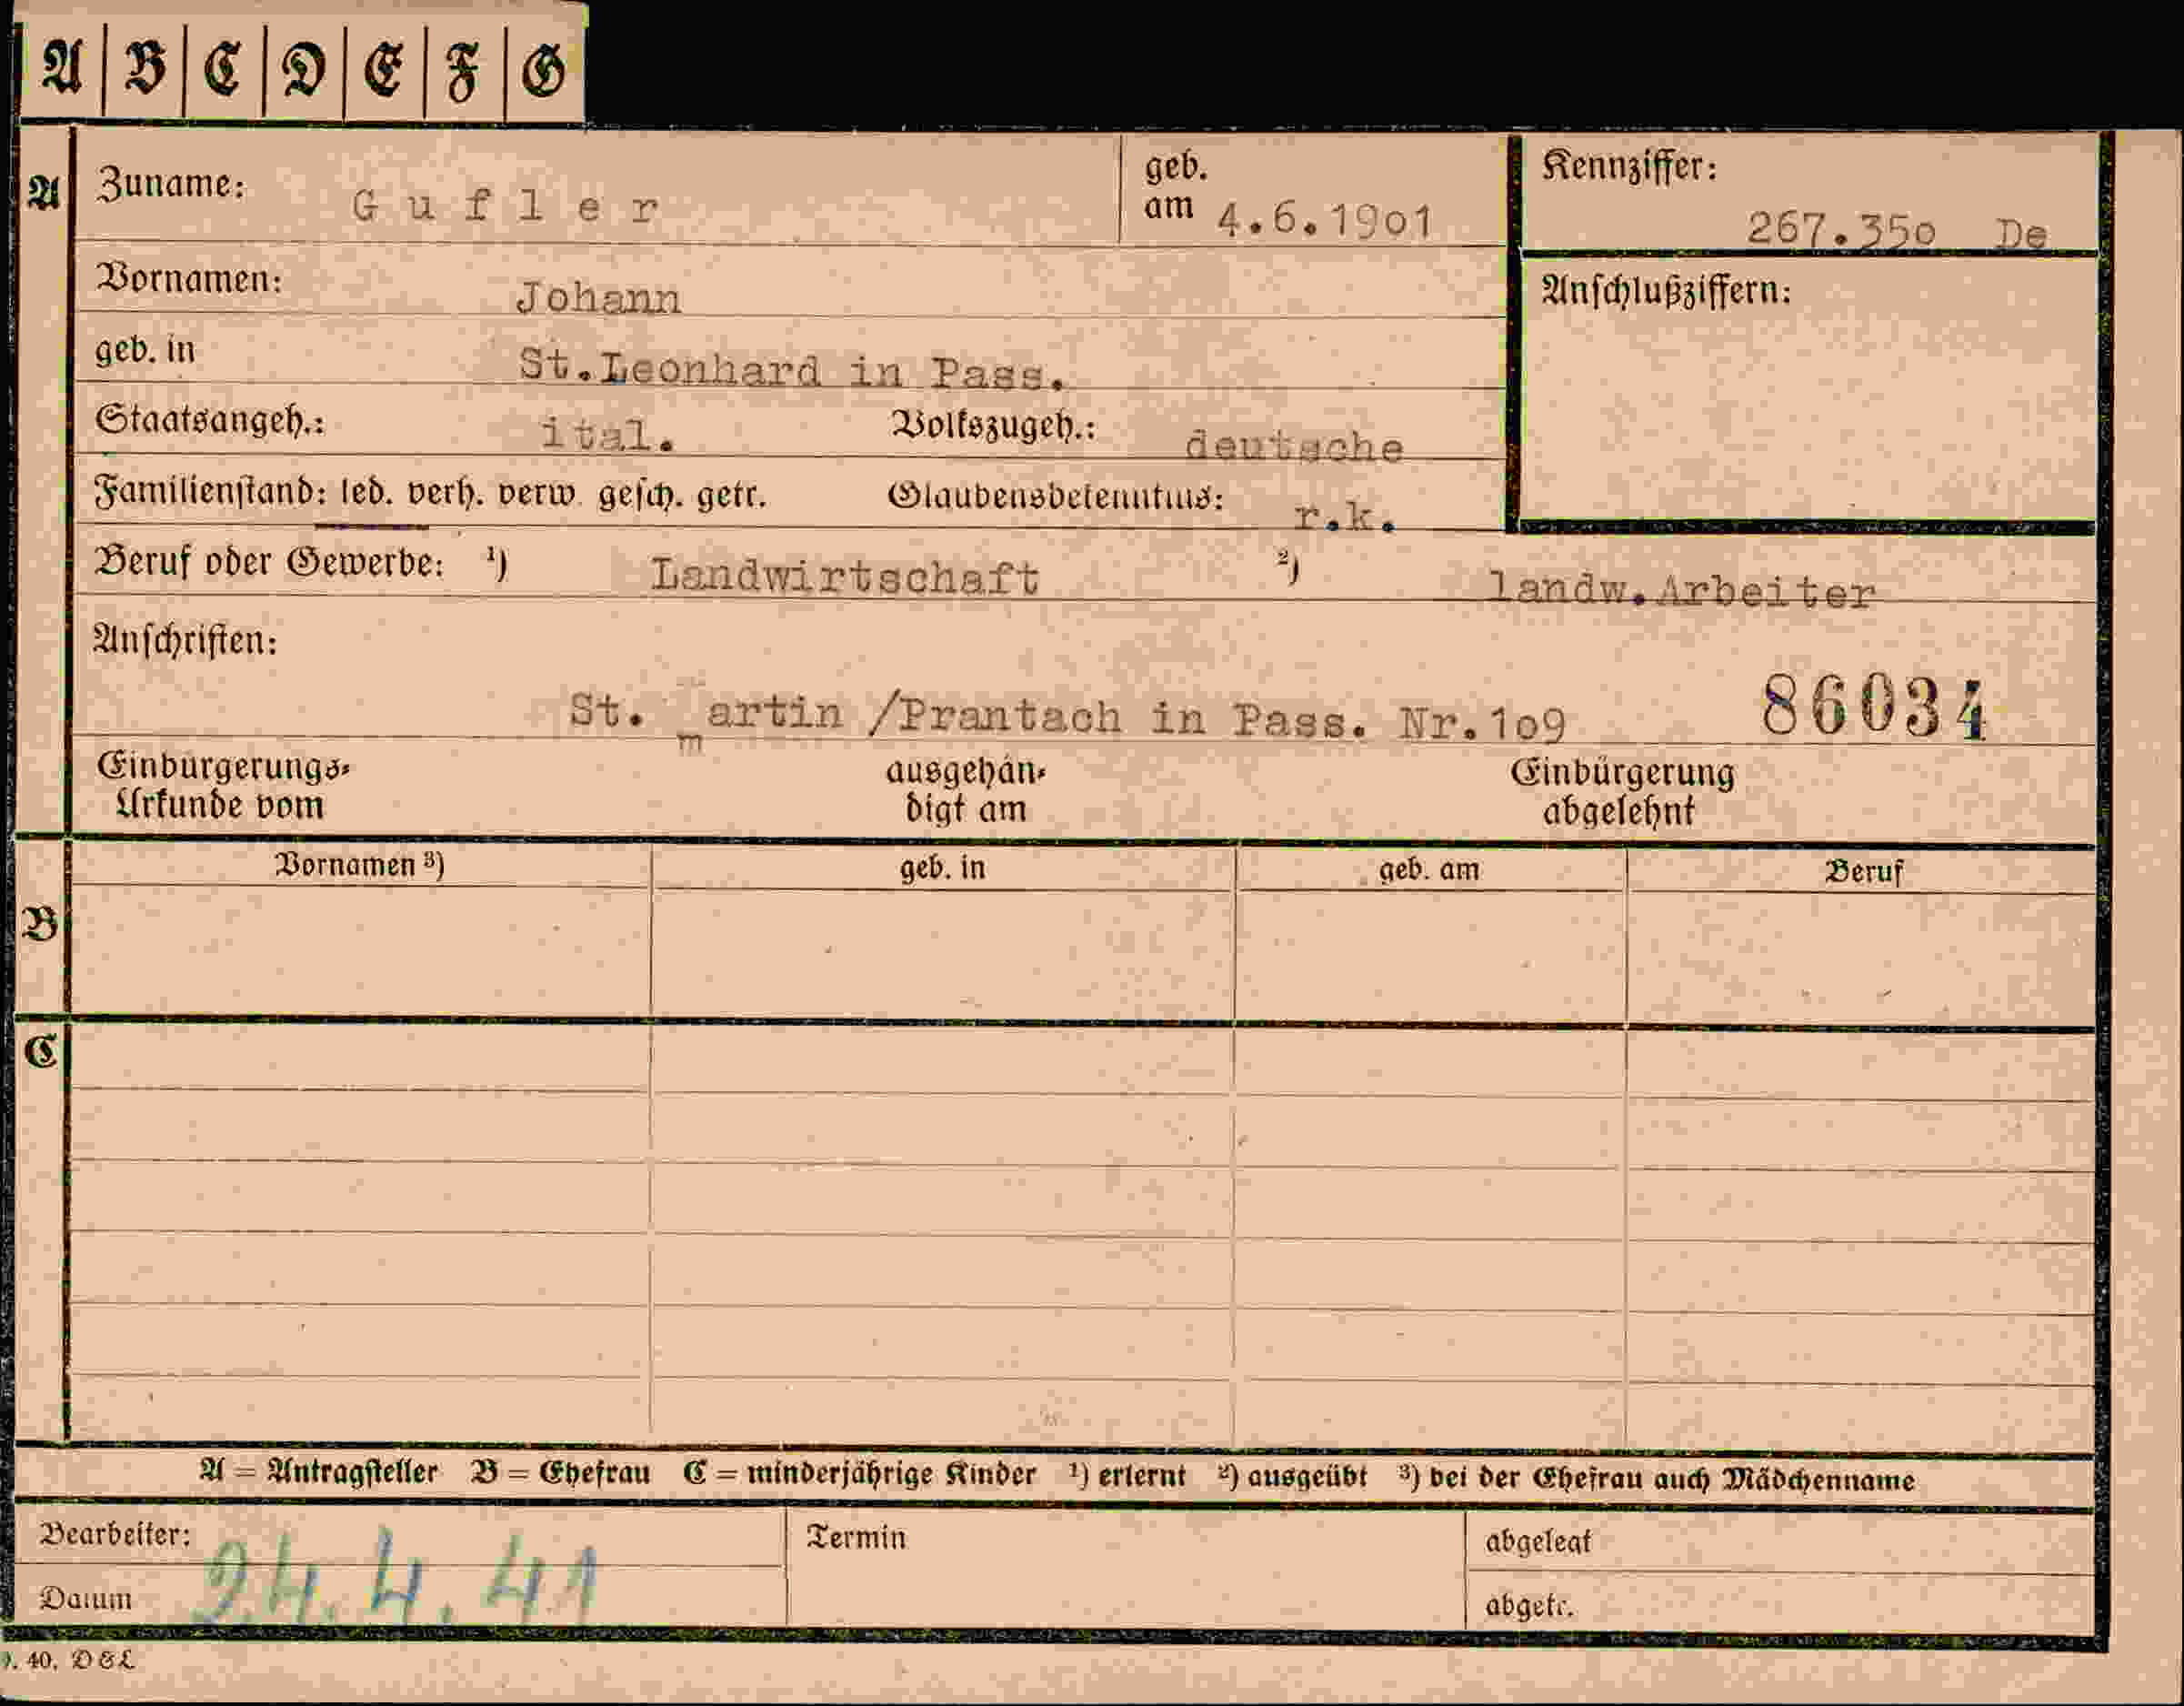 A B C D E F G
A Zuname: Gufler geb. am 4.6.19o1 Kennziffer: 267.35o De
Vornamen: Johann Anschlußziffern:
geb. in St.Leonhard in Pass.
Staatsangeh.: ital. Volkszugeh.: deutsche
Familienstand: led. verh. verw. gesch. getr. Glaubensbekenntnis: r.k.
Beruf oder Gewerbe: ¹) Landwirtschaft ²) landw.Arbeiter
Anschriften:
St. martin /Prantach in Pass. Nr.1o9 86034
Einbürgerungs- ausgehän- Einbürgerung
Urkunde vom digt am abgelehnt
Vornamen ³) geb. in geb. am Beruf
B
C
A = Antragsteller B = Ehefrau C = minderjährige Kinder ¹) erlernt ²) ausgeübt ³) bei der Ehefrau auch Mädchenname
Bearbeiter: Termin abgelegt
Datum 24.4.41 abgetr.
40. D&L